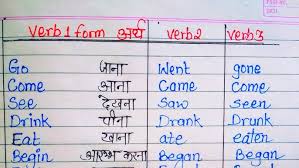 verb 1 form अर्थ verb2 verb3
Go जाना Went gone
Come आना Came Come
See देखना Saw seen
Drink पीना Drank Drunk
Eat खाना ate eaten
Begin आरम्भ करना Began Began